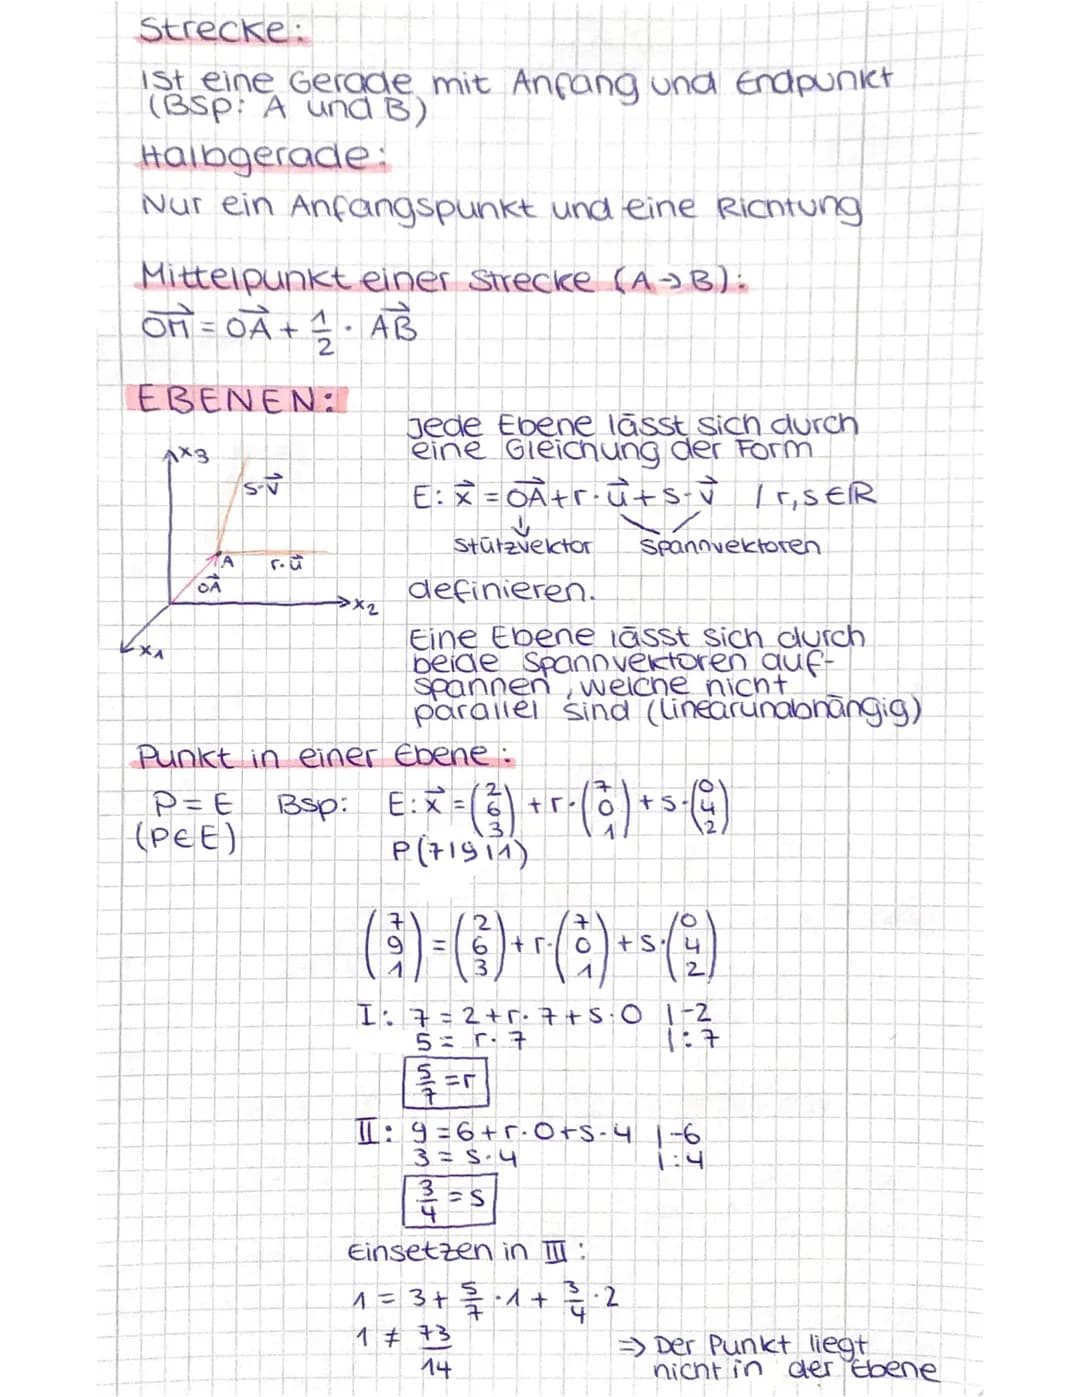 Strecke:
ist eine Gerade mit Anfang und Endpunkt
(BSP: A und B)
Halbgerade:
Nur ein Anfangspunkt und eine Richtung
Mittelpunkt einer Strecke (A→B):
$\vec{OM} = \vec{OA} + \frac{1}{2} \cdot \vec{AB}$
EBENEN:
Jede Ebene lässt sich durch
eine Gleichung der Form
E: $\vec{x} = \vec{OA} + r \cdot \vec{u} + s \cdot \vec{v}$ / r,s∈R
Stützvektor Spannvektoren
definieren.
x3
s·$\vec{v}$
A r·$\vec{u}$
$\vec{OA}$
x2
x1
Eine Ebene lässt sich durch
beide Spannvektoren auf-
spannen, welche nicht
parallel sind (linearunabhängig)
Punkt in einer Ebene:
P=E Bsp: E: $\vec{x} = \begin{pmatrix}2\\6\\3\end{pmatrix} + r \cdot \begin{pmatrix}7\\0\\1\end{pmatrix} + s \cdot \begin{pmatrix}0\\4\\2\end{pmatrix}$
(P∈E) P(7|9|1)
$\begin{pmatrix}7\\9\\1\end{pmatrix} = \begin{pmatrix}2\\6\\3\end{pmatrix} + r \cdot \begin{pmatrix}7\\0\\1\end{pmatrix} + s \cdot \begin{pmatrix}0\\4\\2\end{pmatrix}$
I: 7 = 2+r·7+s·0 |-2
5 = r·7 |:7
$\frac{5}{7}$ = r
II: 9=6+r·0+s·4 |-6
3 = s·4 |:4
$\frac{3}{4}$ = s
Einsetzen in III:
1 = 3 + $\frac{5}{7}$ ·1 + $\frac{3}{4}$ ·2
1 ≠ $\frac{73}{14}$ ⇒ Der Punkt liegt
nicht in der Ebene